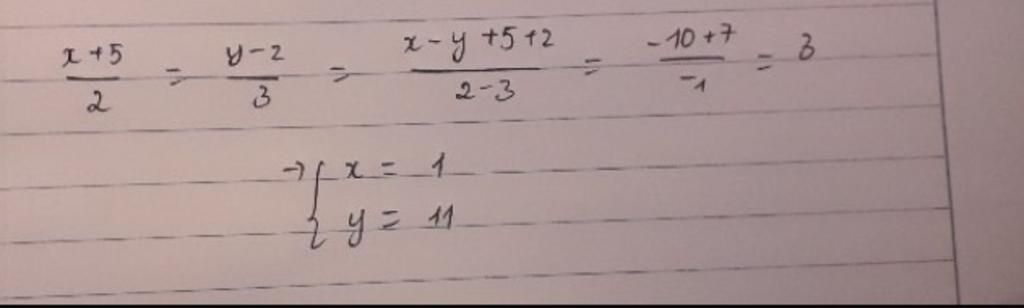 x+5/2 = y-2/3 = x-y+5+2/2-3 = -10+7/-1 = 3
→ { x = 1
y = 11